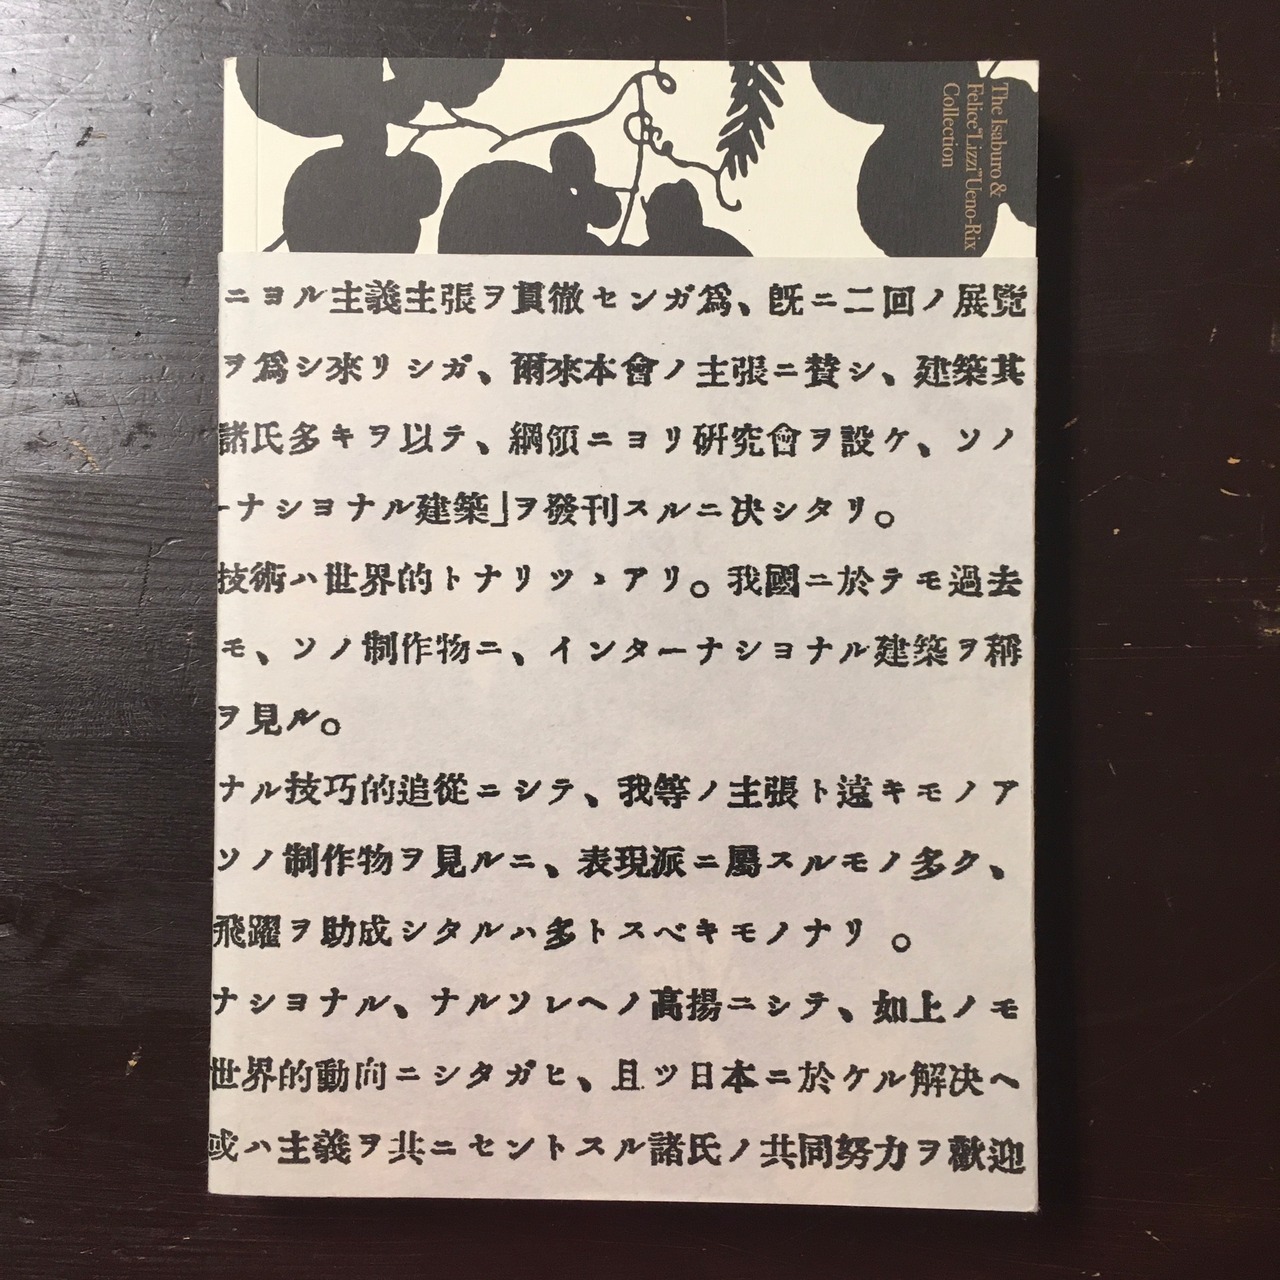 The Isaburo &
Felice "Lizzi" Ueno-Rix
Collection
ニヨル主義主張ヲ貫徹センガ爲、既ニ二回ノ展覽
ヲ爲シ來リシガ、爾來本會ノ主張ニ賛シ、建築其
諸氏多キヲ以テ、綱領ニヨリ研究會ヲ設ケ、ソノ
ーナシヨナル建築」ヲ發刊スルニ决シタリ。
技術ハ世界的トナリツヽアリ。我國ニ於テモ過去
モ、ソノ制作物ニ、インターナシヨナル建築ヲ稱
ヲ見ル。
ナル技巧的追從ニシテ、我等ノ主張ト遠キモノア
ソノ制作物ヲ見ルニ、表現派ニ屬スルモノ多ク、
飛躍ヲ助成シタルハ多トスベキモノナリ。
ナシヨナル、ナルソレヘノ高揚ニシテ、如上ノモ
世界的動向ニシタガヒ、且ツ日本ニ於ケル解决ヘ
或ハ主義ヲ共ニセントスル諸氏ノ共同努力ヲ歡迎